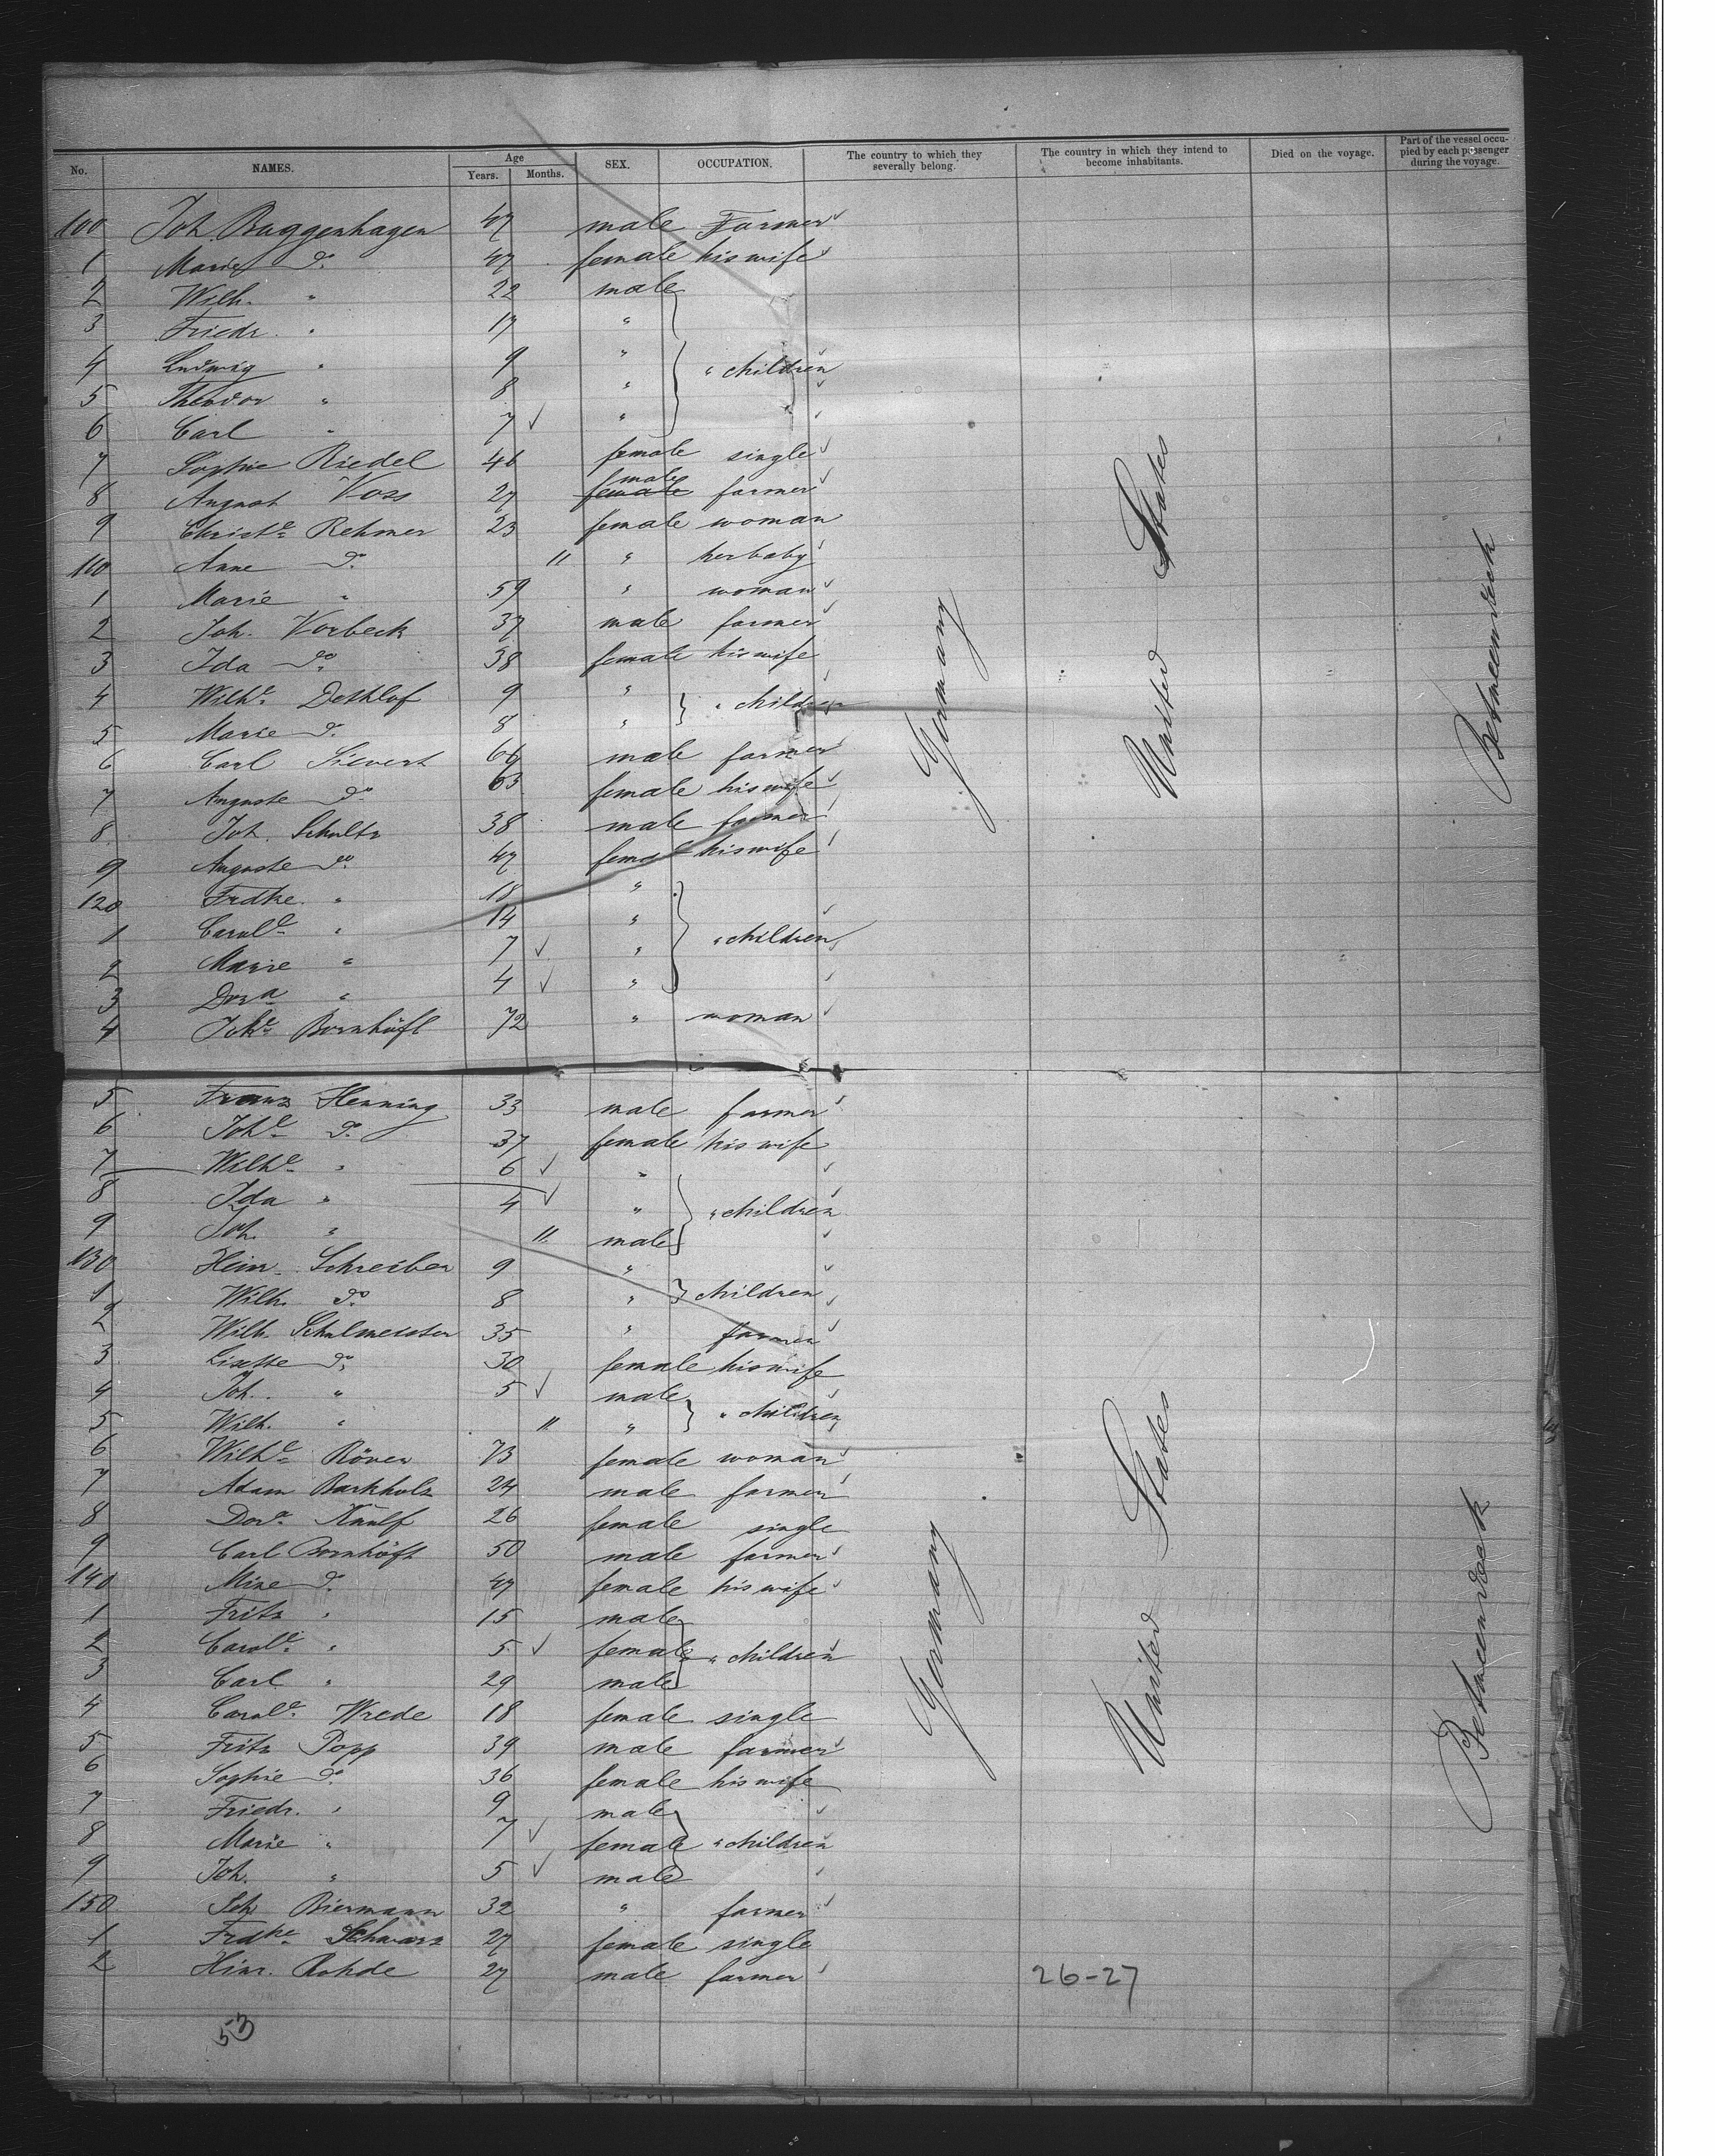 No. NAMES. Age Years. Months. SEX. OCCUPATION. The country to which they severally belong. The country in which they intend to become inhabitants. Died on the voyage. Part of the vessel occupied by each passenger during the voyage.
100 Joh. Buggenhagen 47 male Farmer
1 Marie do. 47 female his wife
2 Wilh. " 22 male
3 Friedr. " 17 "
4 Ludwig " 9 " " children
5 Theodor " 8 "
6 Carl " 7 ✓ "
7 Sophie Riedel 46 female single
8 August Voss 27 female male farmer
9 Christe. Rehmer 23 female woman
110 Anne do. 11 " her baby
1 Marie " 59 " woman
2 Joh. Vorbeck 37 male farmer
3 Ida do. 38 female his wife
4 Wilhe. Dethlof 9 " " children
5 Marie do. 8 "
6 Carl Sievert 64 male farmer
7 Auguste do. 63 female his wife
8 Joh. Schultz 38 male farmer
9 Auguste do. 47 female his wife
120 Frdke. " 18 "
1 Carole. " 14 " " children
2 Marie " 7 ✓ "
3 Dora " 4 ✓ "
4 Johe. Bornhöft 72 " woman
5 Franz Henning 33 male farmer
6 Johe. do. 37 female his wife
7 Wilhe. " 6 ✓ "
8 Ida " 4 ✓ " " children
9 Joh. " 11 male
130 Heinr. Schreiber 9 "
1 Wilh. do. 8 " children
2 Wilh. Schulmeister 35 " farmer
3 Lisette do. 30 female his wife
4 Joh. " 5 ✓ male " children
5 Wilh. " 11 "
6 Wilhe. Röver 73 female woman
7 Adam Barkholz 24 male farmer
8 Dora. 26 female single
9 Carl Bornhöft 50 male farmer
140 Mine do. 47 female his wife
1 Fritz " 15 male
2 Carole. " 5 ✓ female " children
3 Carl " 29 male
4 Carole. Wrede 18 female single
5 Fritz Popp 39 male farmer
6 Sophie do. 36 female his wife
7 Friedr. " 9 male
8 Marie " 7 ✓ female " children
9 Joh. " 5 ✓ male
150 Joh. Biermann 32 " farmer
1 Frdke. Schwarz 27 female single
2 Hinr. Rohde 27 male farmer
Germany
United States
Betweendeck
Germany
United States
Betweendeck
26-27
53